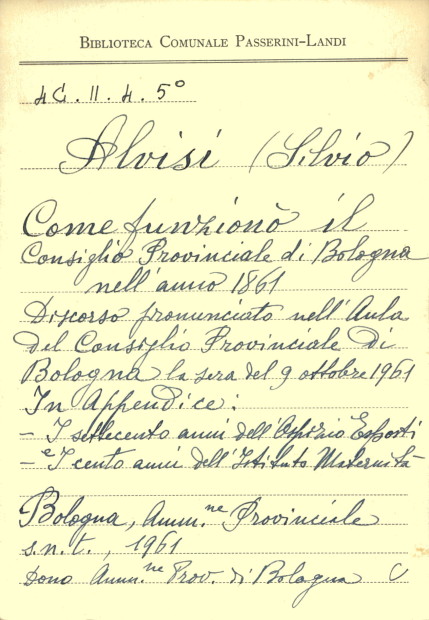 BIBLIOTECA COMUNALE PASSERINI-LANDI
4C. II. 4. 5°
Alvisi (Silvio)
Come funzionò il
Consiglio Provinciale di Bologna
nell'anno 1861
Discorso pronunciato nell'Aula
del Consiglio Provinciale di
Bologna la sera del 9 ottobre 1961
In Appendice:
- I settecento anni dell'Ospizio Esposti
- e I cento anni dell'Istituto Maternità
Bologna, Amm.ne Provinciale
s.n.t., 1961
Dono Amm.ne Prov. di Bologna C